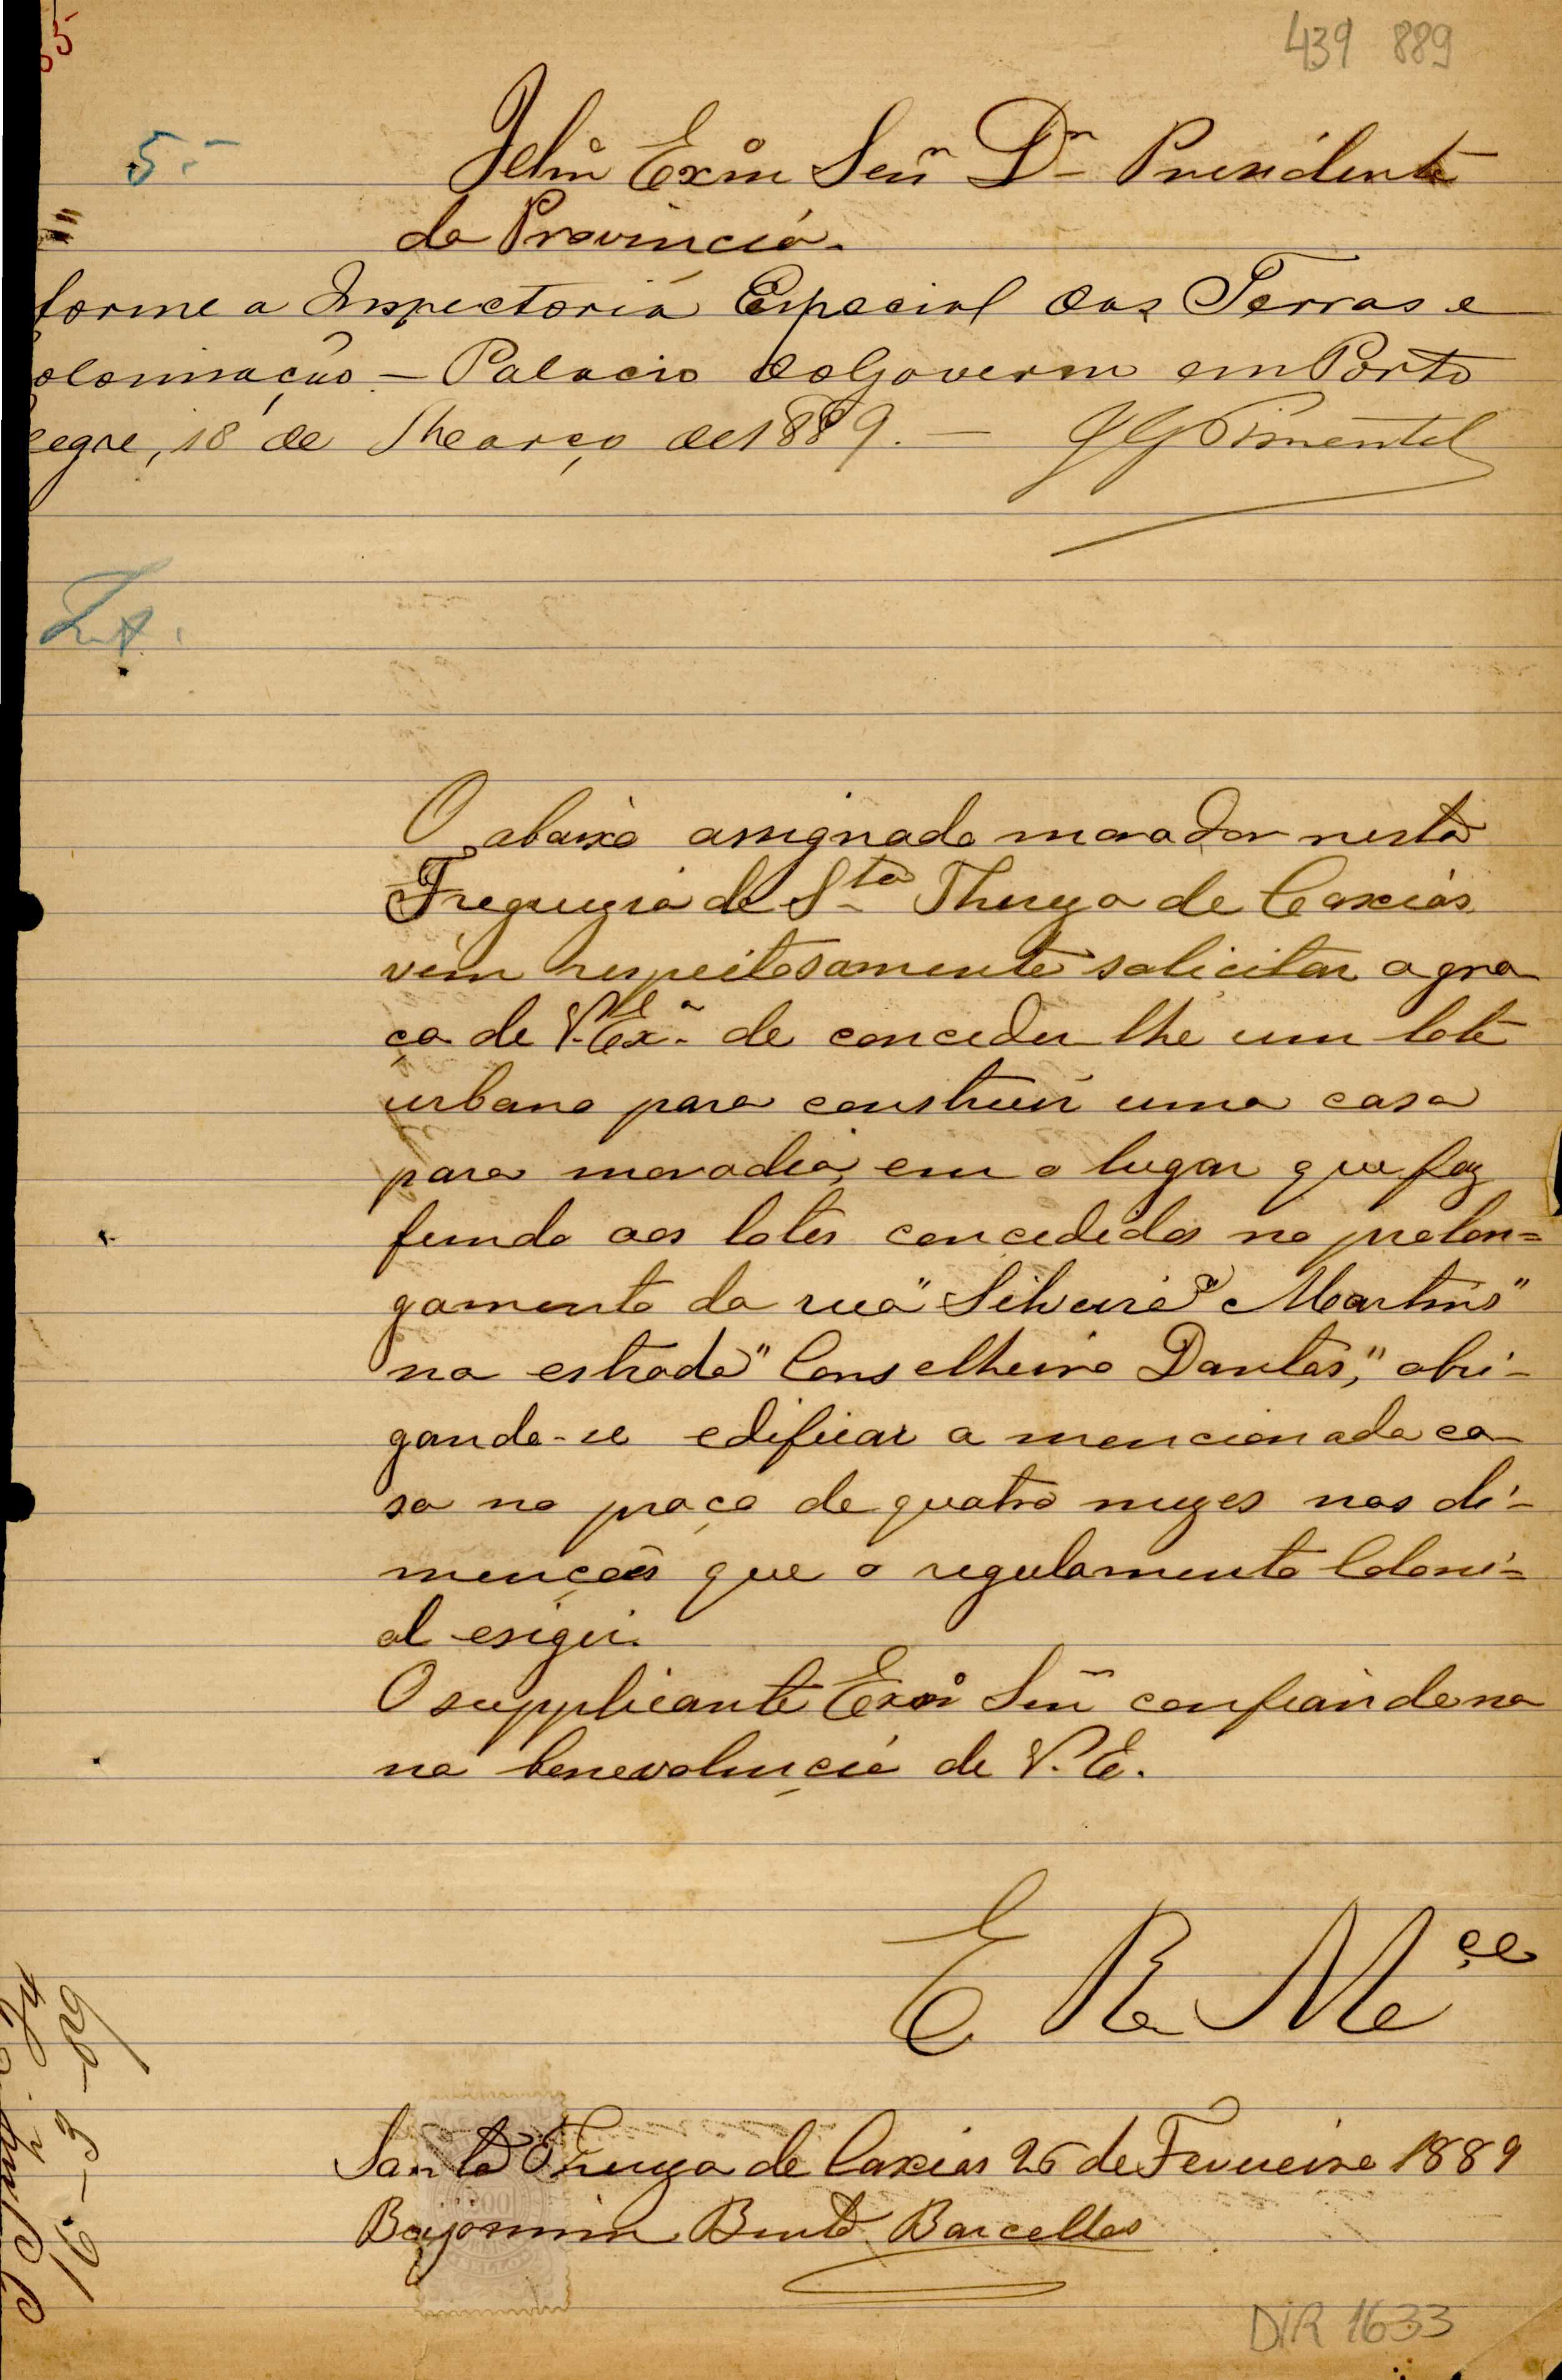 439 889
5.-
Illm̊ Exm̊ Señr Dr Presidente
da Provincia.
forme a Inspectoria Especial das Terras e
olonisação - Palacio do Governo em Porto
legre, 18 de Março de 1889. - JGPimentel
O abaixo assignado morador nesta
Freguezia de Sta Thereza de Caxias
vem respeitosamente solicitar a gra
ça de V. Exa. de conceder lhe um lote
urbano para construir uma casa
para moradia, em o lugar que faz
fundo aos lotes concedidos no prolon=
gamento da rua "Silveira Martins"
na estrada "Conselheiro Dantas," obri-
gando-se edificar a mencionada ca-
sa no praço de quatro mezes nas di-
menções que o regulamento Coloni=
al esigir.
O supplicante Exm̊ Señr confiando na
na benevolencia de V. E.
E R Mce
Santa Thereza de Caxias 26 de Fevereiro 1889
Benjamim Bento Barcellos
16-3-89
DIR 1633